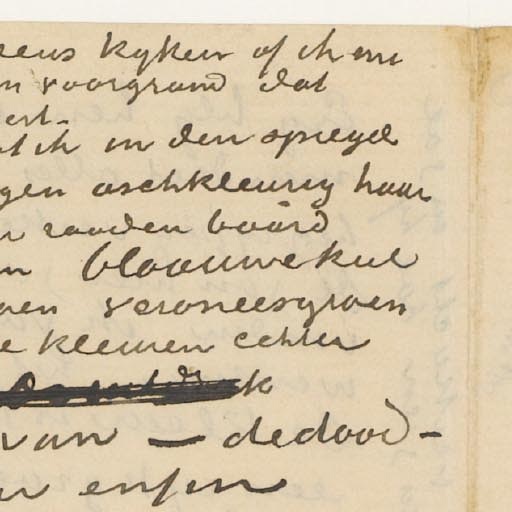 eens kyken of ik om
n voorgrond dat
ert.
at ik in den spiegel
gen aschkleurig haar
n rooden baard
n blaauwe kiel
oen veroneesgroen
e kleuren echter
k
van — de dood –
en enfin